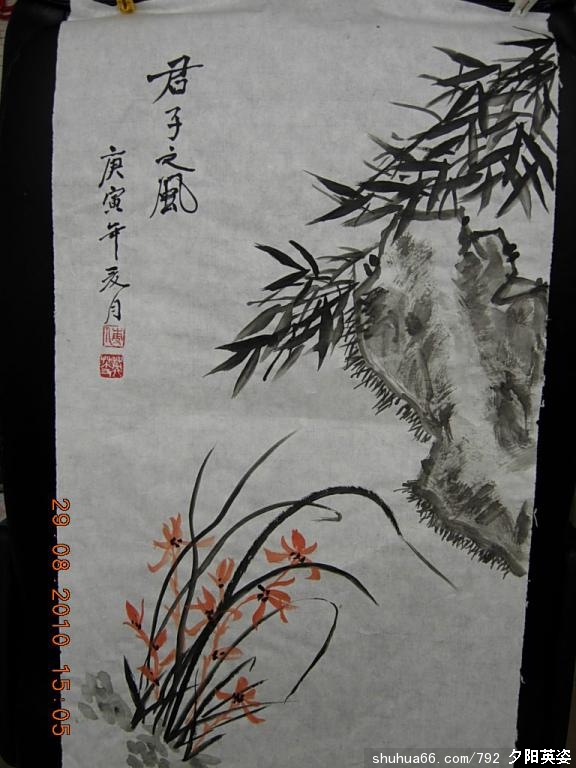 君子之风
庚寅年夏月
29.08.2010 15:05
shuhua66.com/792 夕阳英姿